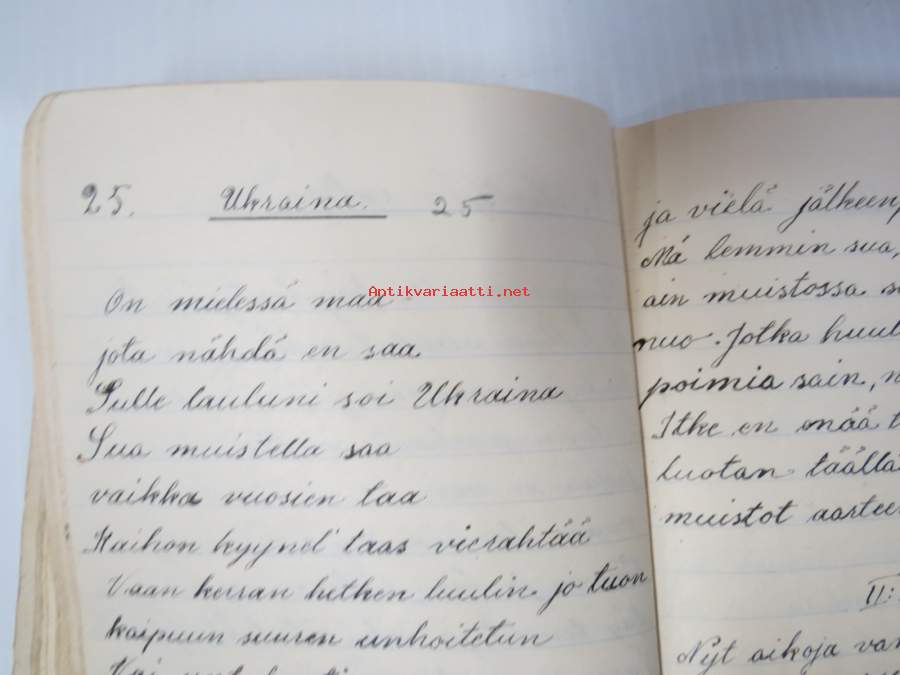 25. Ukraina. 25
On mielessä maa
jota nähdä en saa
Sulle lauluni soi Ukraina
Sua muistella saa
vaikka vuosien taa
Kaihon kyynel' taas vierähtää
Vaan kerran hetken luulin jo tuon
kaipuun suuren unhoitetun
ja vielä jälkeen
Mä lemmin sua,
ain muistossa
nuo. Jotka
poimia sain,
Itke en enää
luotan täällä
muistot
II:
Nyt aikoja
Antikvariaatti.net